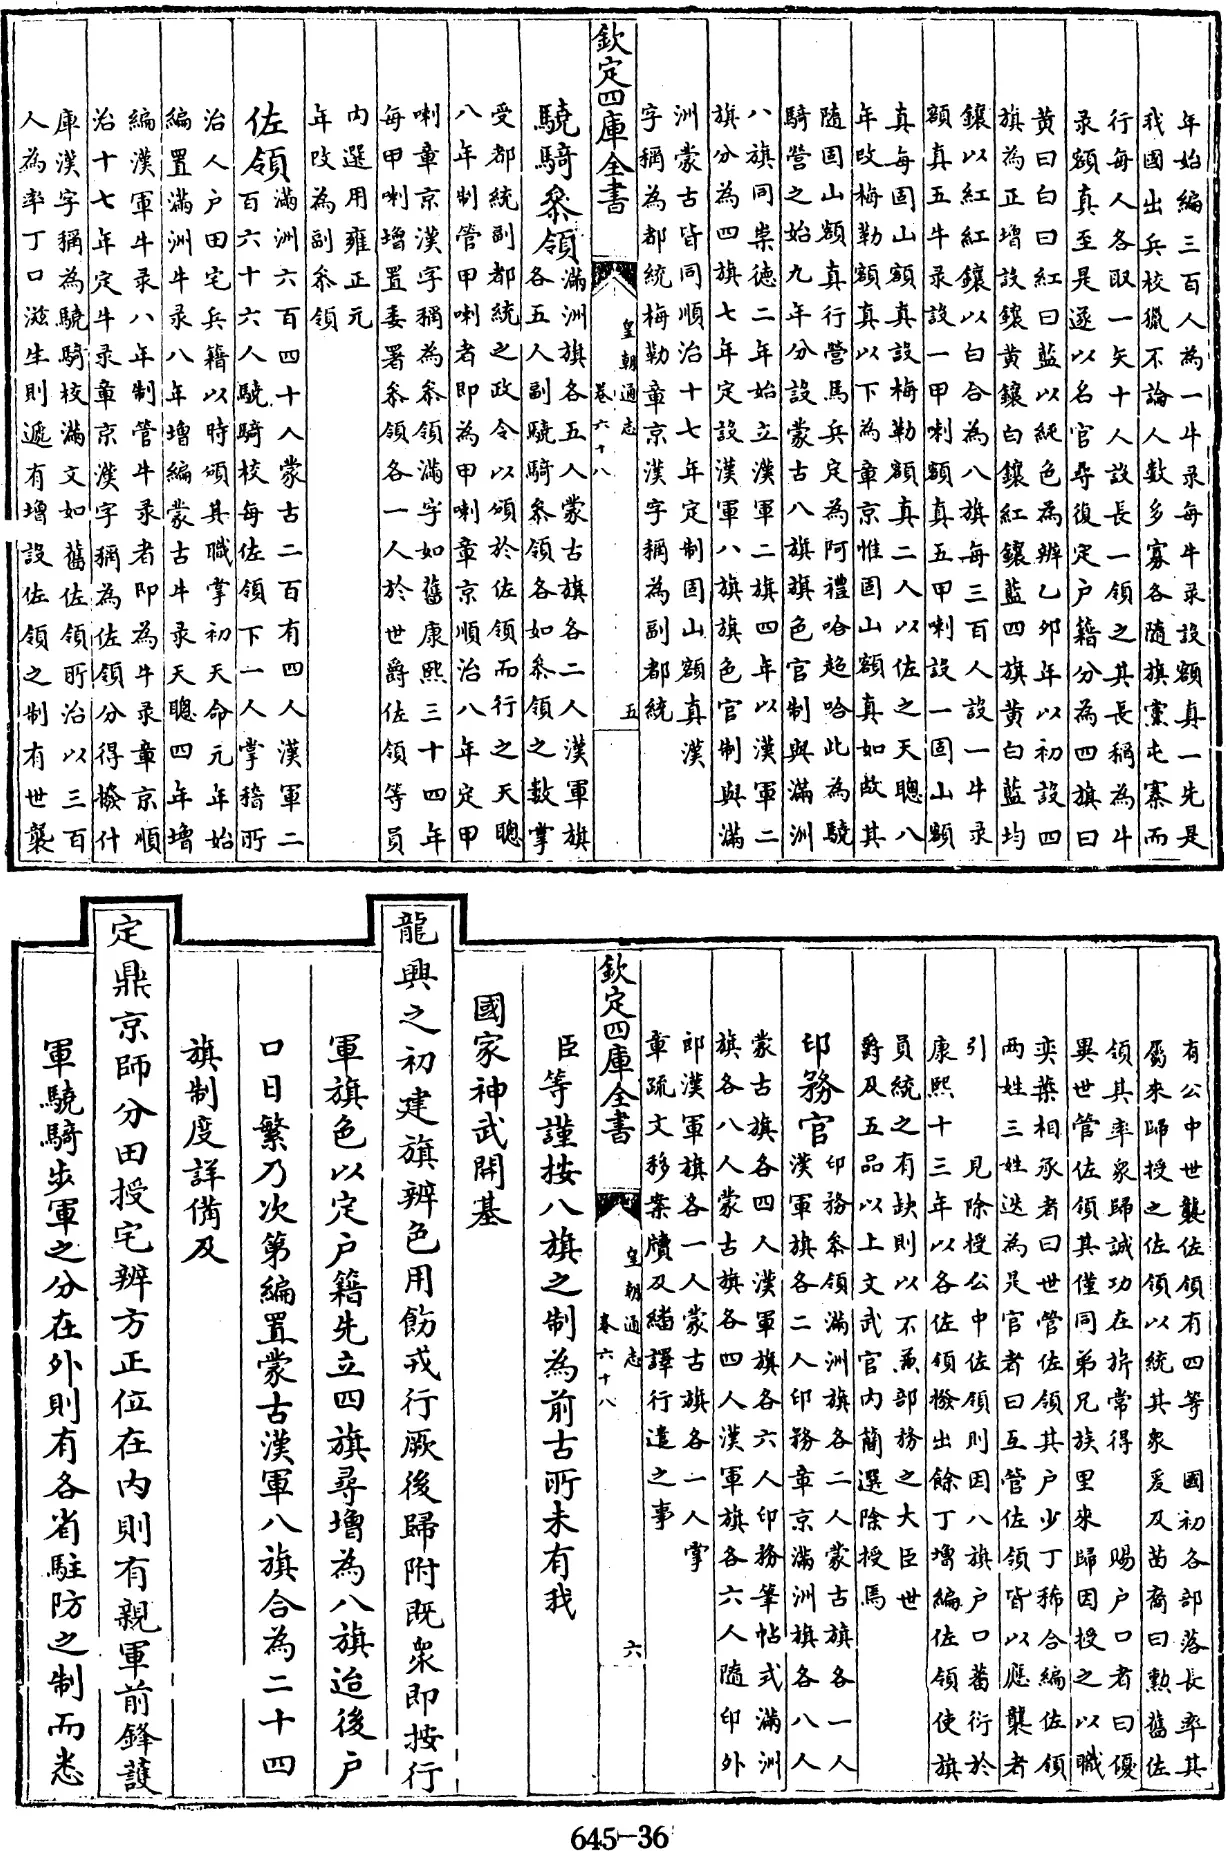 年始編三百人為一牛录每牛录設額真一先是
我國出兵校獵不論人數多寡各隨旗黨屯寨而
行每人各取一矢十人設長一領之其長稱為牛
录額真至是遂以名官尋復定户籍分為四旗曰
黄曰白曰紅曰藍以純色為辨乙夘年以初設四
旗為正增設鑲黄鑲白鑲紅鑲藍四旗黄白藍均
鑲以紅紅鑲以白合為八旗每三百人設一牛录
額真五牛录設一甲喇額真五甲喇設一固山額
真每固山額真設梅勒額真二人以佐之天聰八
年改梅勒額真以下為章京惟固山額真如故其
隨固山額真行營馬兵定為阿禮哈超哈此為驍
騎營之始九年分設蒙古八旗旗色官制與滿洲
八旗同崇徳二年始立漢軍二旗四年以漢軍二
旗分為四旗七年定設漢軍八旗旗色官制與滿
洲蒙古皆同順治十七年定制固山額真漢
字稱為都統梅勒章京漢字稱為副都統
欽定四庫全書 皇朝通志 卷六十八 五
驍騎叅領滿洲旗各五人蒙古旗各二人漢軍旗
各五人副驍騎叅領各如叅領之數掌
受都統副都統之政令以頒於佐領而行之天聰
八年制管甲喇者即為甲喇章京順治八年定甲
喇章京漢字稱為叅領滿字如舊康熙三十四年
每甲喇增置委署叅領各一人於世爵佐領等員
内選用雍正元
年改為副叅領
佐領滿洲六百四十人蒙古二百有四人漢軍二
百六十六人驍騎校每佐領下一人掌稽所
治人户田宅兵籍以時頒其職掌初天命元年始
編置滿洲牛录八年增編蒙古牛录天聰四年增
編漢軍牛录八年制管牛录者即為牛录章京順
治十七年定牛录章京漢字稱為佐領分得撥什
庫漢字稱為驍騎校滿文如舊佐領所治以三百
人為率丁口滋生則遞有增設佐領之制有世襲
有公中世襲佐領有四等 國初各部落長率其
屬來歸授之佐領以統其衆爰及苗裔曰勲舊佐
領其率衆歸誠功在旂常得 賜户口者曰優
異世管佐領其僅同弟兄族里來歸因授之以職
奕葉相承者曰世管佐領其户少丁稀合編佐領
兩姓三姓迭為是官者曰互管佐領皆以應襲者
引 見除授公中佐領則因八旗户口蕃衍於
康熙十三年以各佐領撥出餘丁增編佐領使旗
員統之有缺則以不兼部務之大臣世
爵及五品以上文武官内蕳選除授焉
印務官印務叅領滿洲旗各二人蒙古旗各一人
漢軍旗各二人印務章京滿洲旗各八人
蒙古旗各四人漢軍旗各六人印務筆帖式滿洲
旗各八人蒙古旗各四人漢軍旗各六人隨印外
郎漢軍旗各一人蒙古旗各二人掌
章疏文移案牘及繙譯行遣之事
欽定四庫全書 皇朝通志 卷六十八 六
臣等謹按八旗之制為前古所未有我
國家神武開基
龍興之初建旗辨色用飭戎行厥後歸附既衆即按行
軍旗色以定户籍先立四旗尋增為八旗迨後户
口日繁乃次第編置蒙古漢軍八旗合為二十四
旗制度詳備及
定鼎京師分田授宅辨方正位在内則有親軍前鋒護
軍驍騎步軍之分在外則有各省駐防之制而悉
645-36